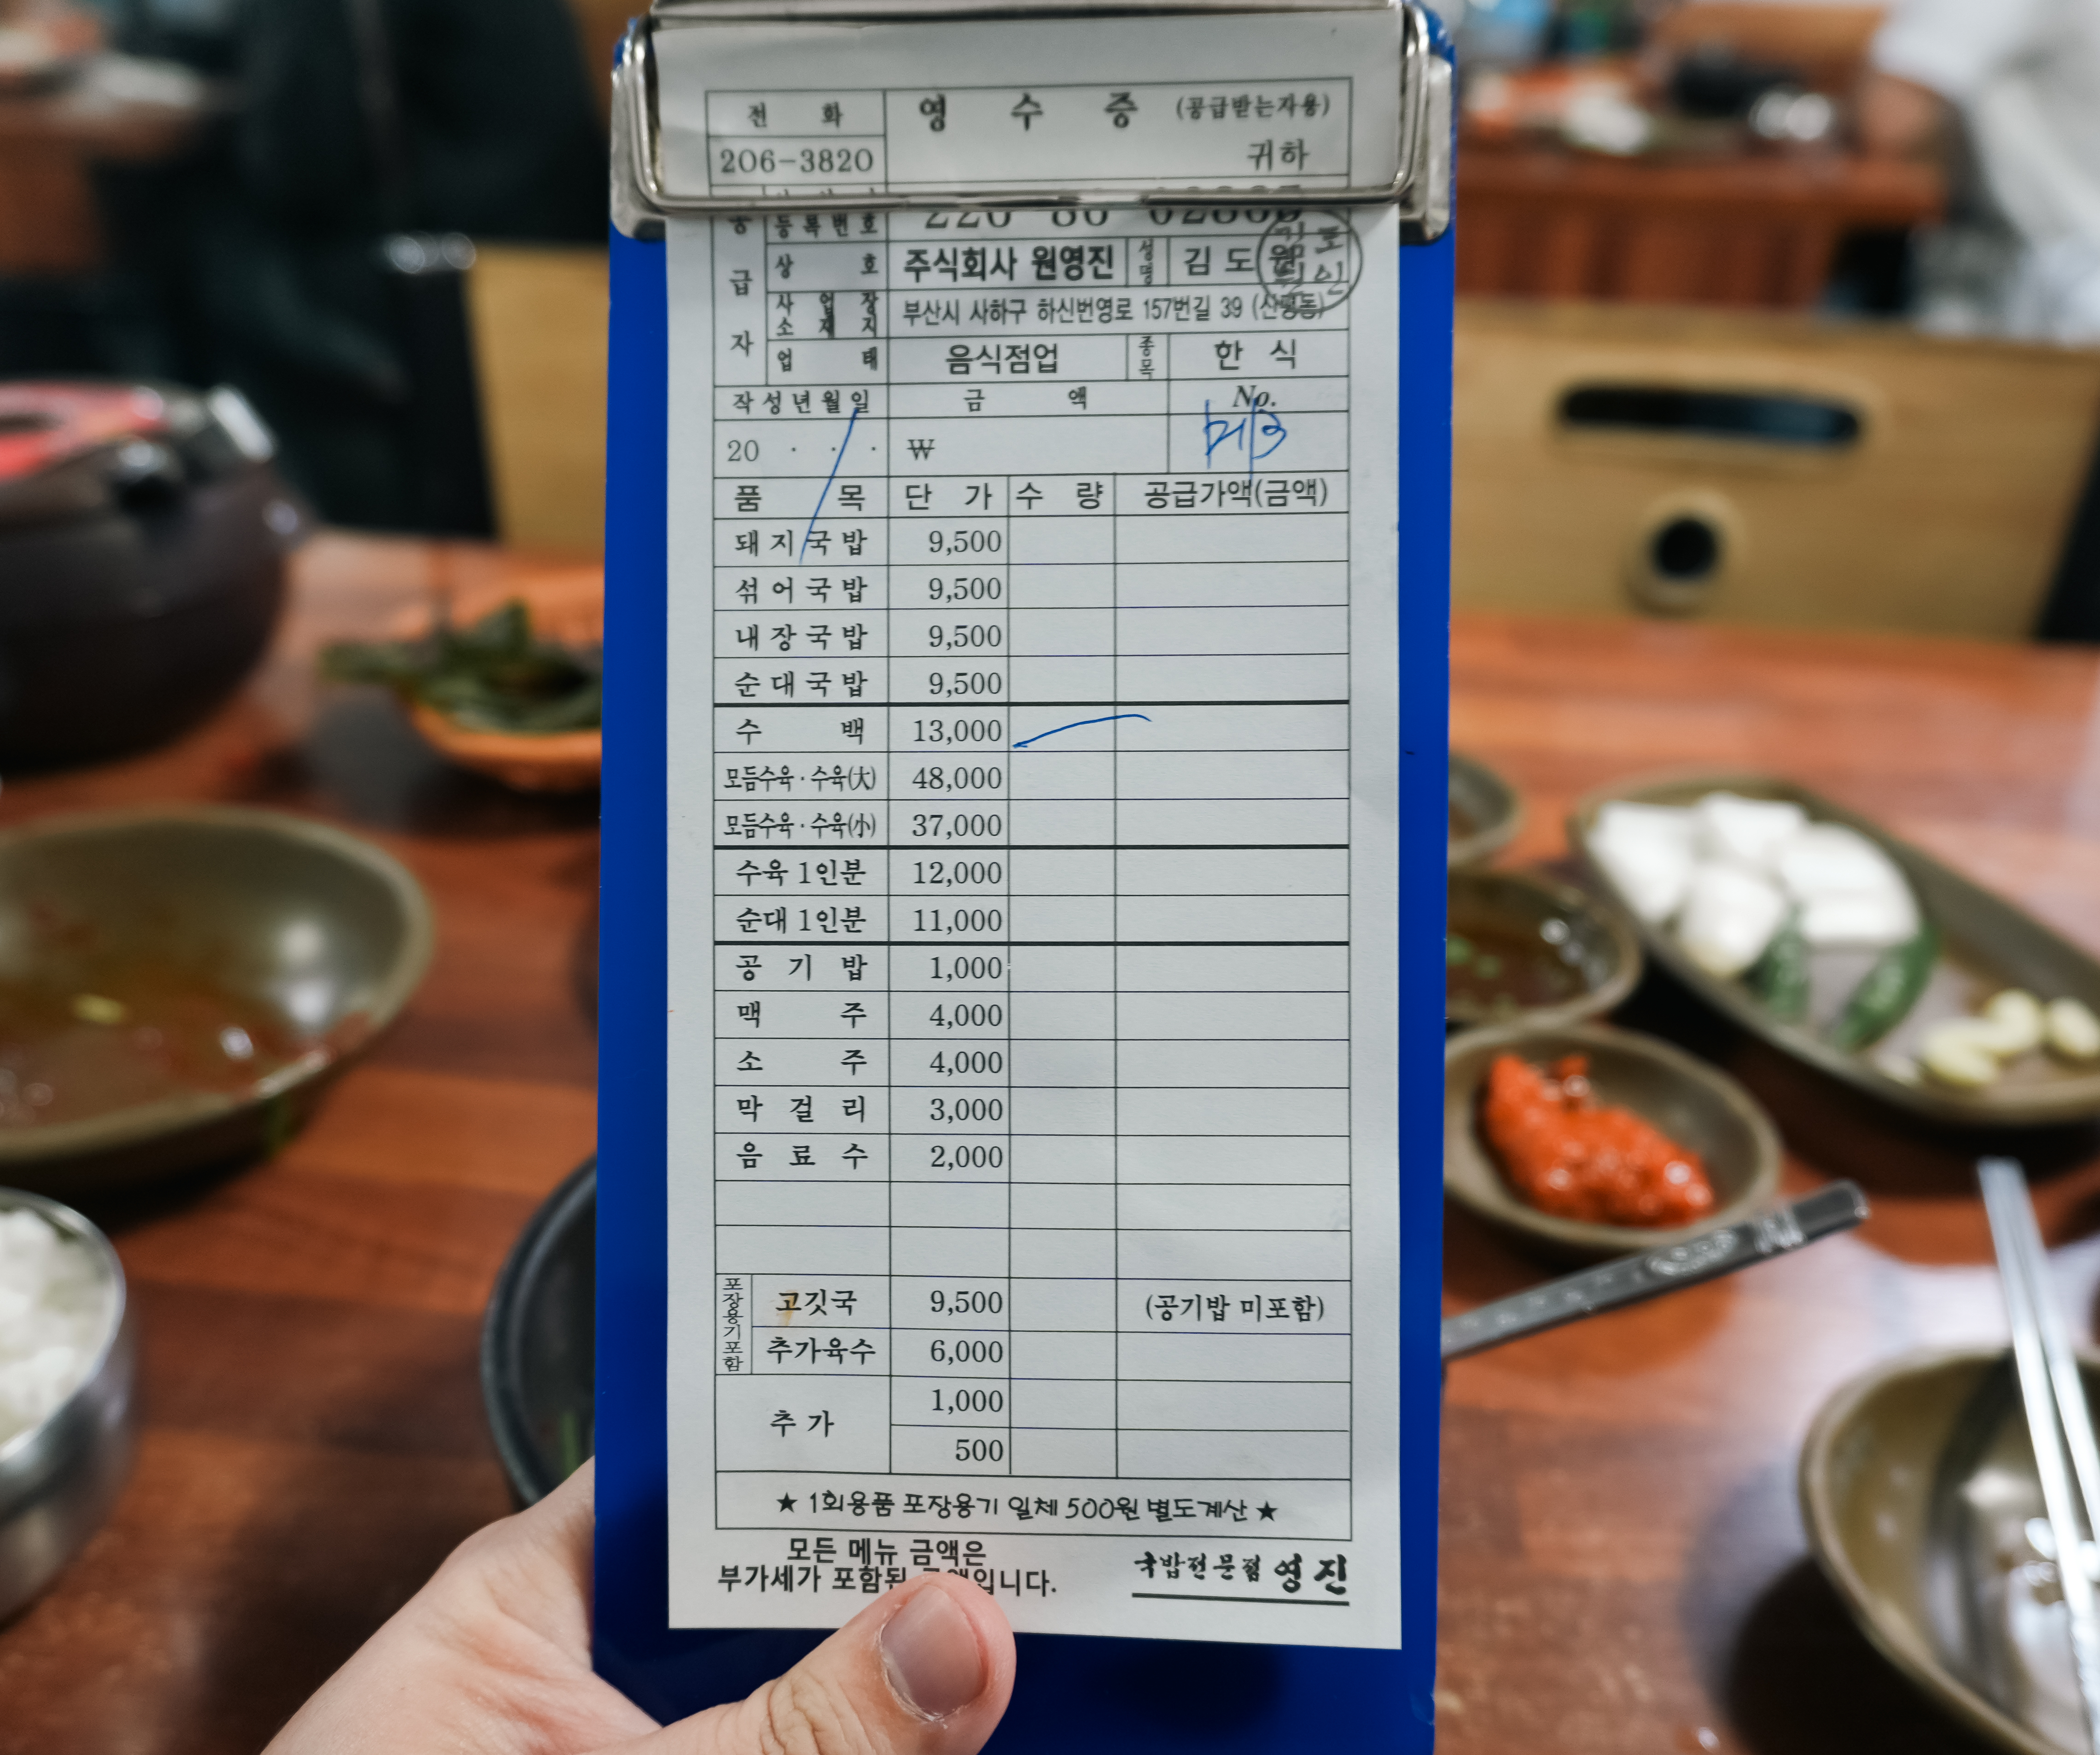 전화 영수증 (공급받는자용)
206-3820 귀하
공급자
등록번호
상호 주식회사 원영진 성명 김도원
사업장소재지 부산시 사하구 하신번영로 157번길 39 (신평동)
업태 음식점업 종목 한식
작성년월일 금액 No.
20 . . . ₩
품목 단가 수량 공급가액(금액)
돼지국밥 9,500
섞어국밥 9,500
내장국밥 9,500
순대국밥 9,500
수백 13,000
모듬수육·수육(大) 48,000
모듬수육·수육(小) 37,000
수육 1인분 12,000
순대 1인분 11,000
공기밥 1,000
맥주 4,000
소주 4,000
막걸리 3,000
음료수 2,000
포장용기포함
고깃국 9,500 (공기밥 미포함)
추가육수 6,000
추가 1,000
500
★ 1회용품 포장용기 일체 500원 별도계산 ★
모든 메뉴 금액은
부가세가 포함된 금액입니다.
국밥전문점 영진